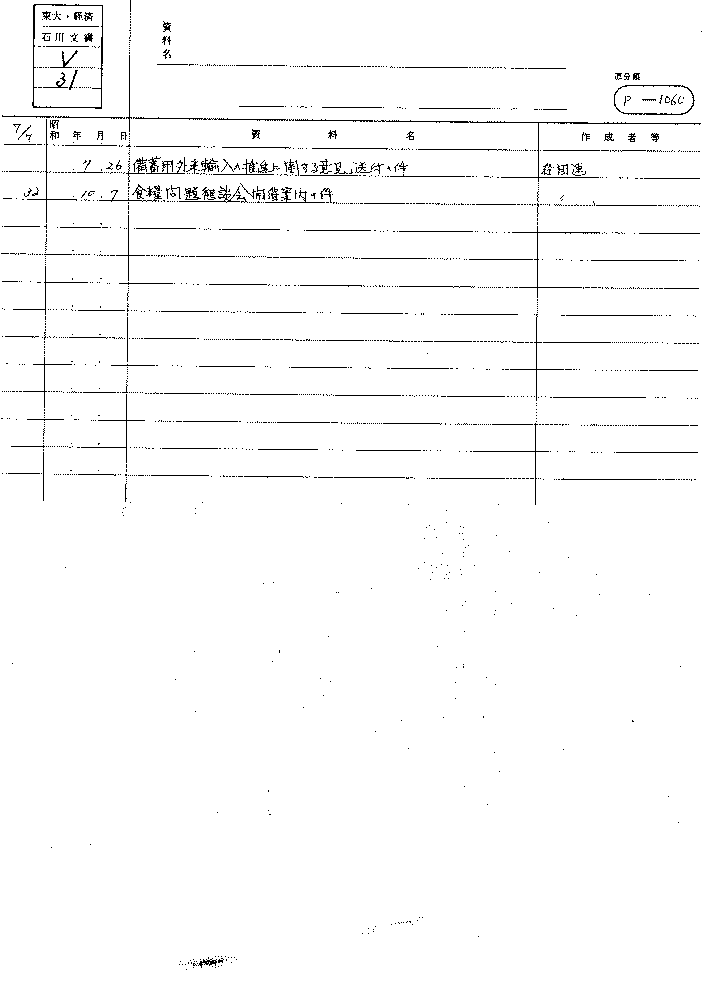 東大・経済
石川文書
V
31
資料名
原分類
P—1060
7/7 昭和 年 月 日 資料名 作成者等
7.26 備蓄用外米輸入の推進に関する意見送付の件 経団連
32 10.7 食糧問題懇談会開催案内の件 〃